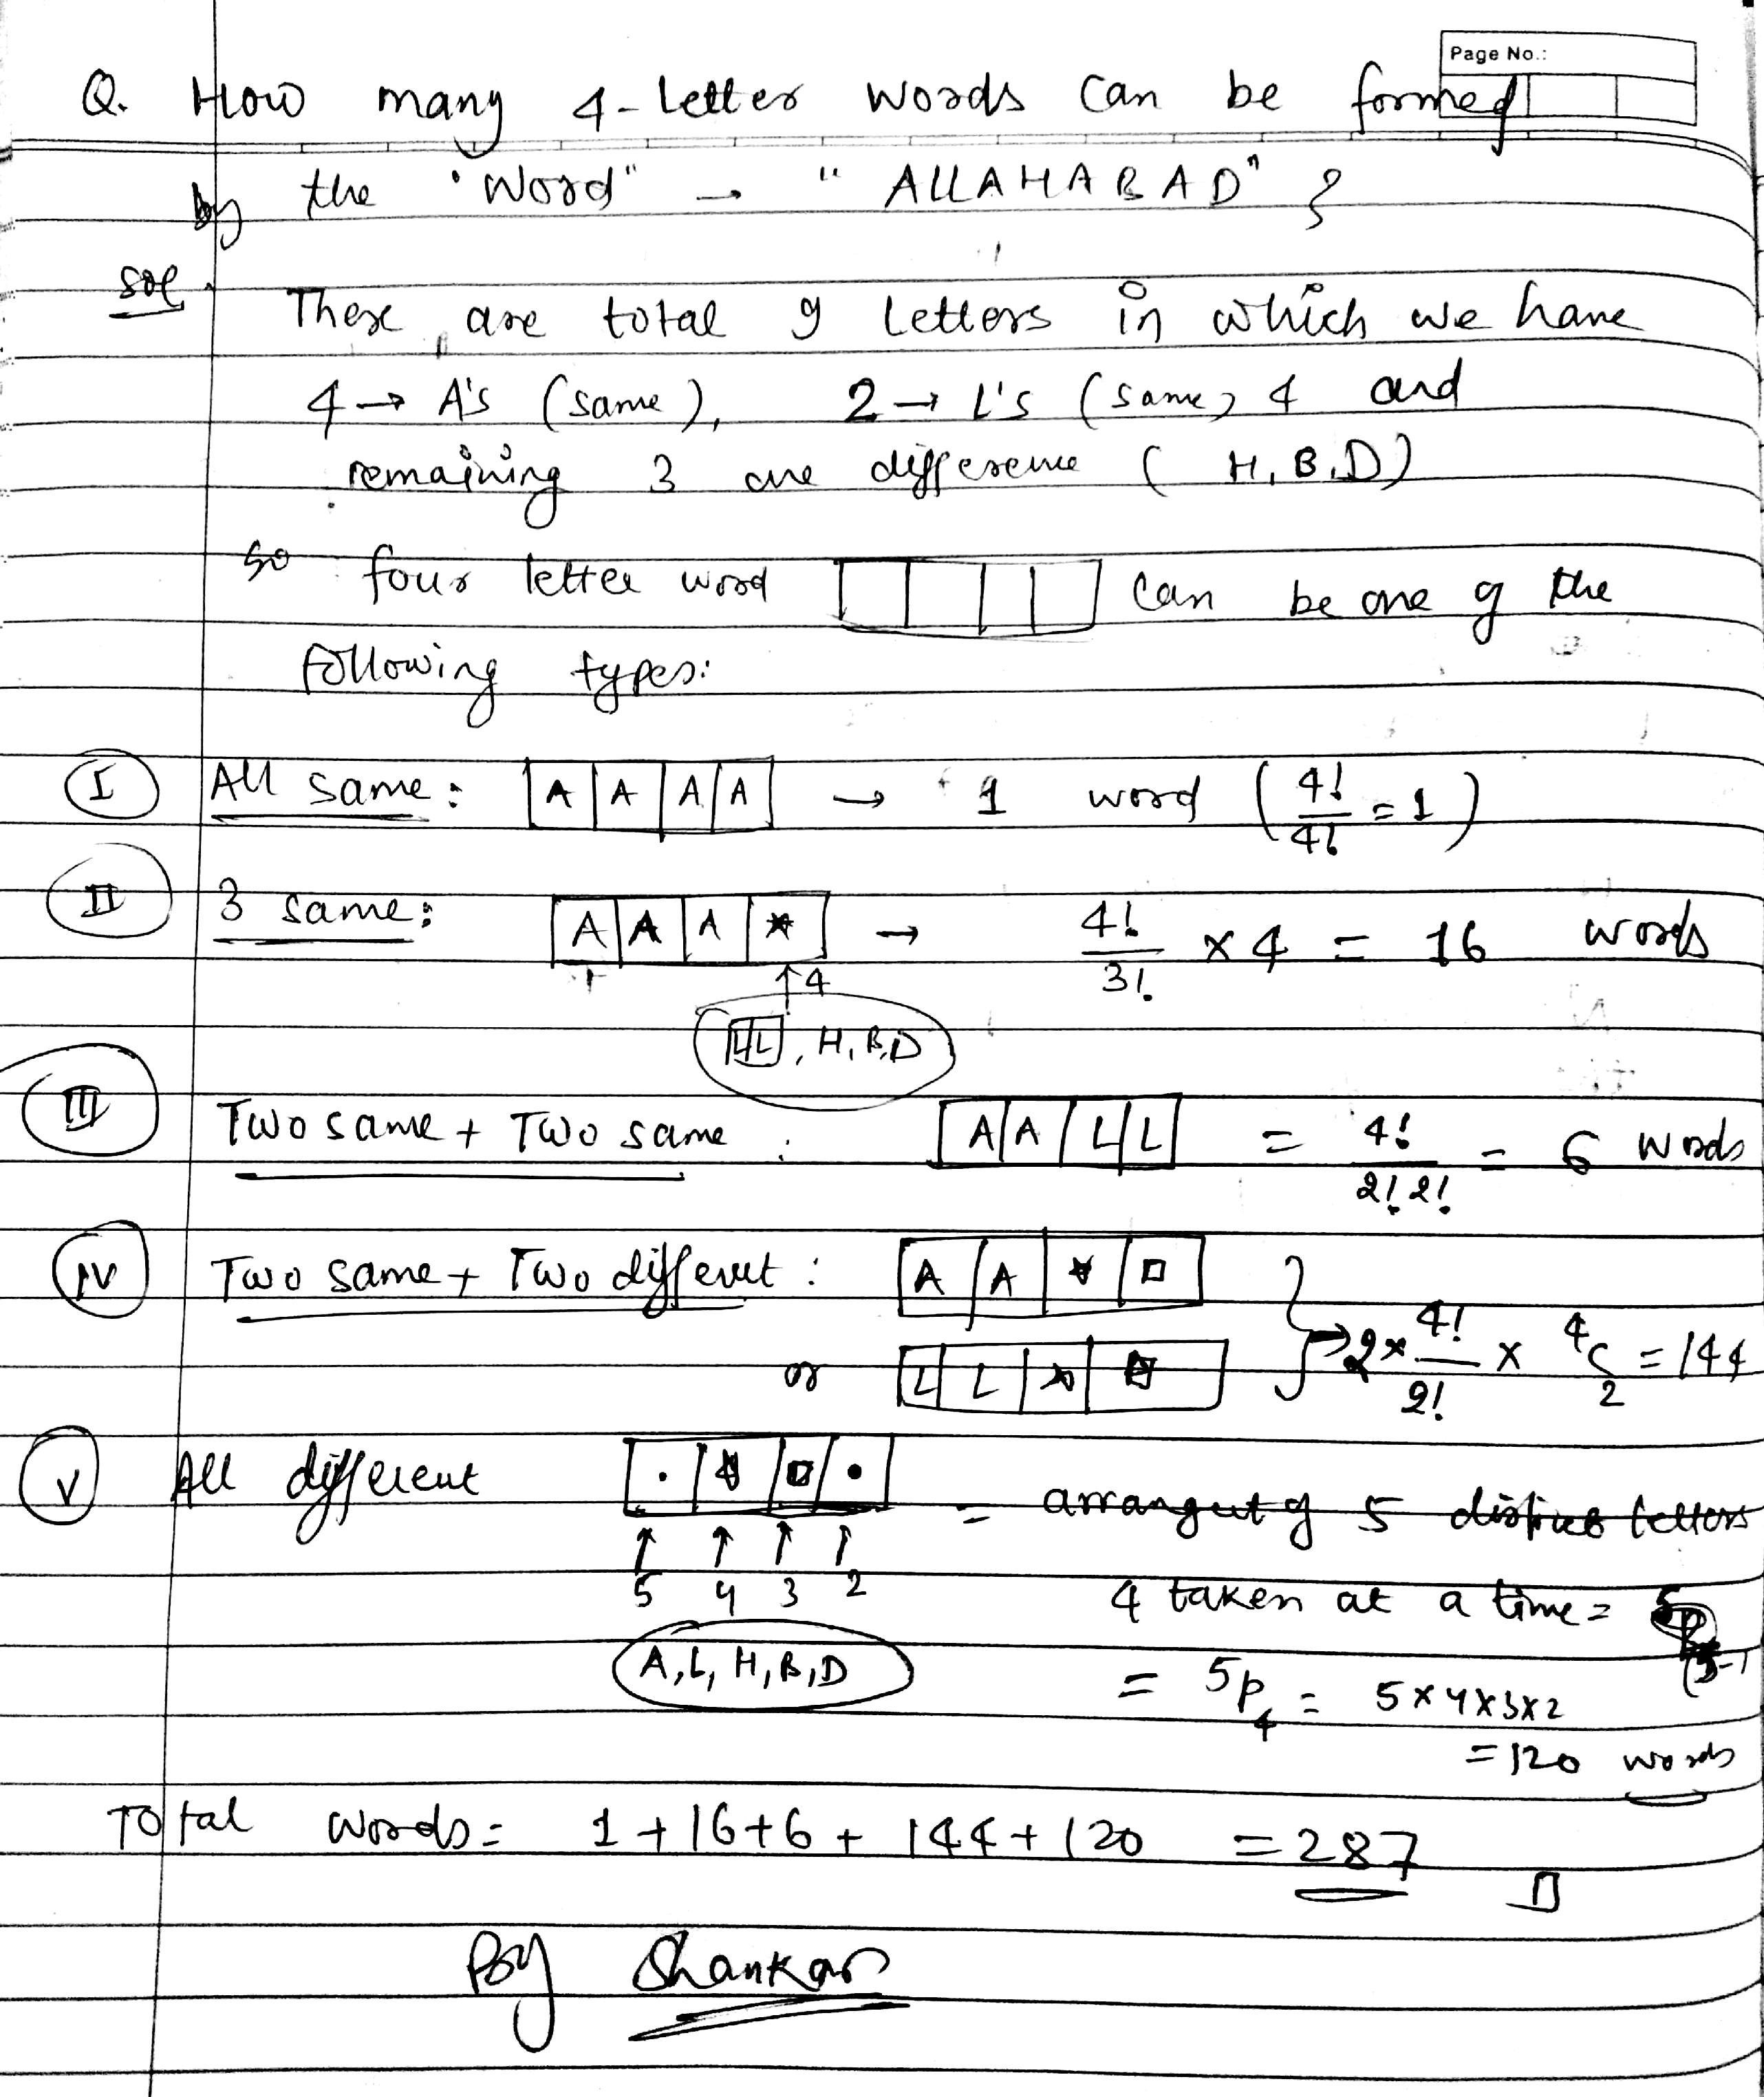 Page No.:
Q. How many 4-letter words can be formed
by the "Word" → "ALLAHABAD" ?
sol. There are total 9 letters in which we have
4 → A's (same), 2 → L's (same) & and
remaining 3 are difference ( H, B, D)
so four letter word can be one of the
following types:
I All same: A A A A → 1 word (4!/4! = 1)
II 3 same: A A A * → 4!/3! × 4 = 16 words
↑4
LL, H, B, D
III Two same + Two same : A A L L = 4!/2!2! = 6 words
IV Two same + Two different : A A * □
or L L * □ } → 2 × 4!/2! × ⁴C₂ = 144
V All different . * □ • = arrangent of 5 distinct letters
↑ ↑ ↑ ↑
5 4 3 2 4 taken at a time =
A, L, H, B, D = 5P₄ = 5×4×3×2
= 120 words
Total words = 1 + 16 + 6 + 144 + 120 = 287
By Shankar